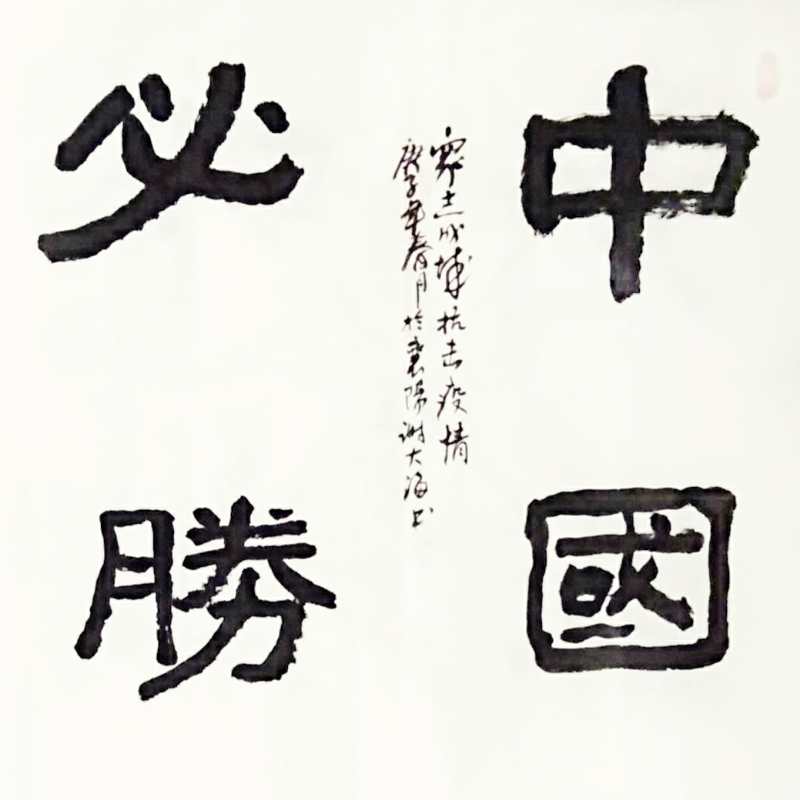 中國
必勝
眾志成城抗击疫情
庚子年春月於襄陽谢大海书